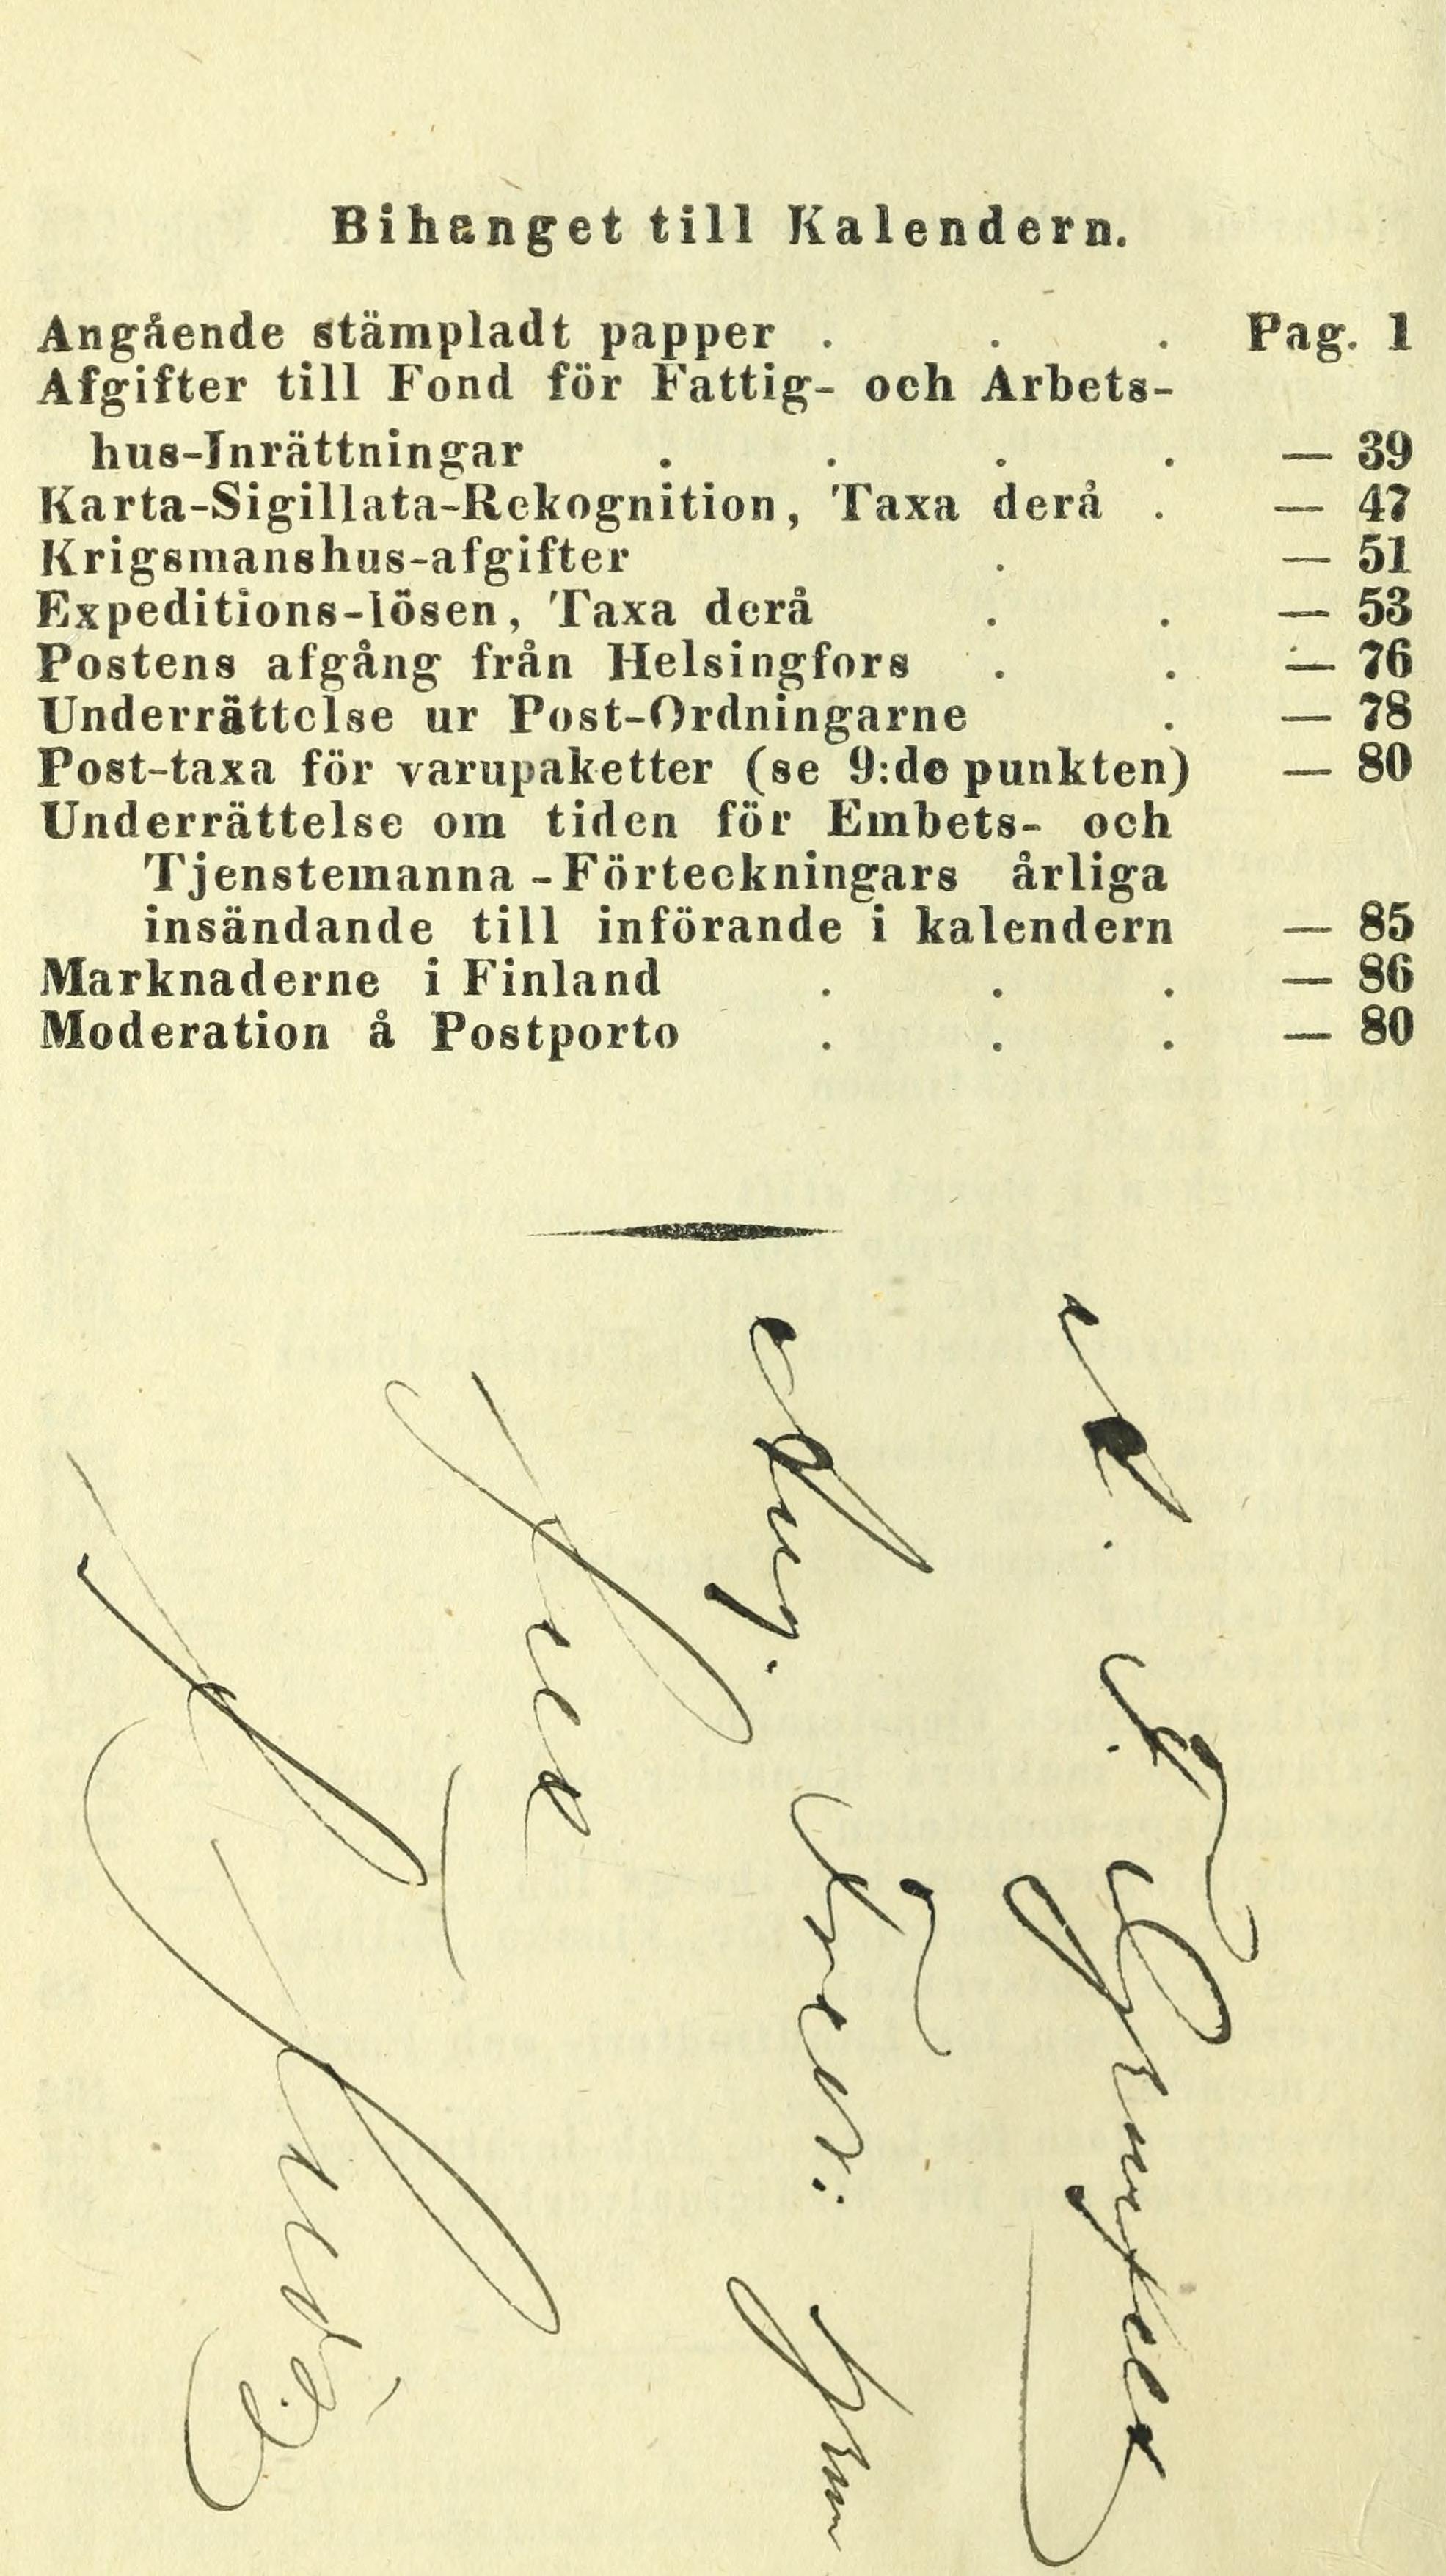 Bihanget till Kalendern.
Angående stämpladt papper . . . Pag. 1
Afgifter till Fond för Fattig- och Arbets-
hus-Inrättningar . . . . — 39
Karta-Sigillata-Rekognition, Taxa derå . — 47
Krigsmanshus-afgifter . — 51
Expeditions-lösen, Taxa derå . . — 53
Postens afgång från Helsingfors . . — 76
Underrättelse ur Post-Ordningarne . — 78
Post-taxa för varupaketter (se 9:de punkten) — 80
Underrättelse om tiden för Embets- och
Tjenstemanna-Förteckningars årliga
insändande till införande i kalendern — 85
Marknaderne i Finland . . . — 86
Moderation å Postporto . . . — 80